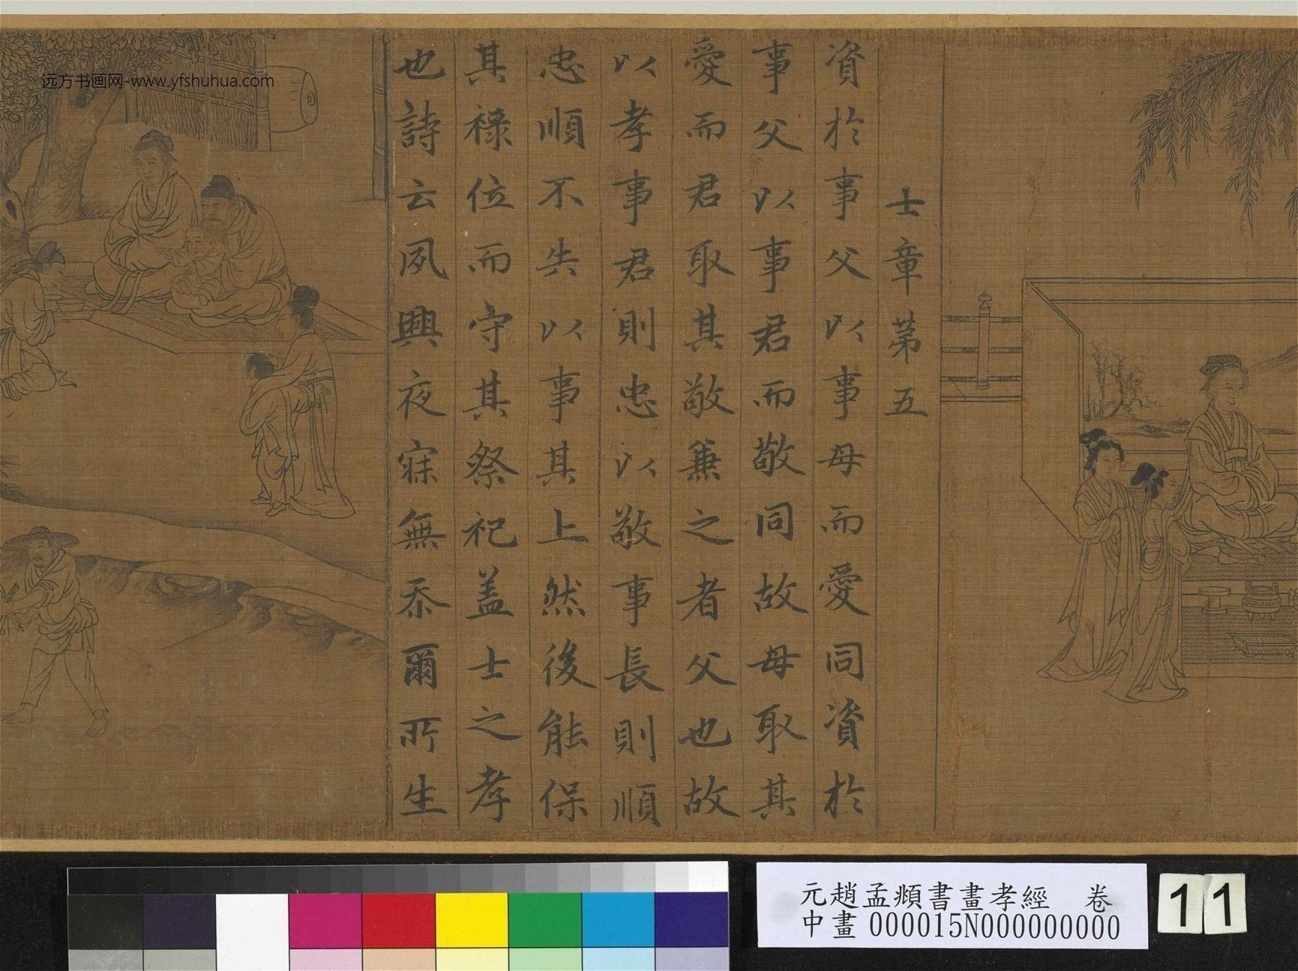 士章第五
資於事父以事母而愛同資於
事父以事君而敬同故母取其
愛而君取其敬兼之者父也故
以孝事君則忠以敬事長則順
忠順不失以事其上然後能保
其祿位而守其祭祀盖士之孝
也詩云夙興夜寐無忝爾所生
远方书画网-www.yfshuhua.com
元趙孟頫書畫孝經 卷
中畫 000015N000000000
11